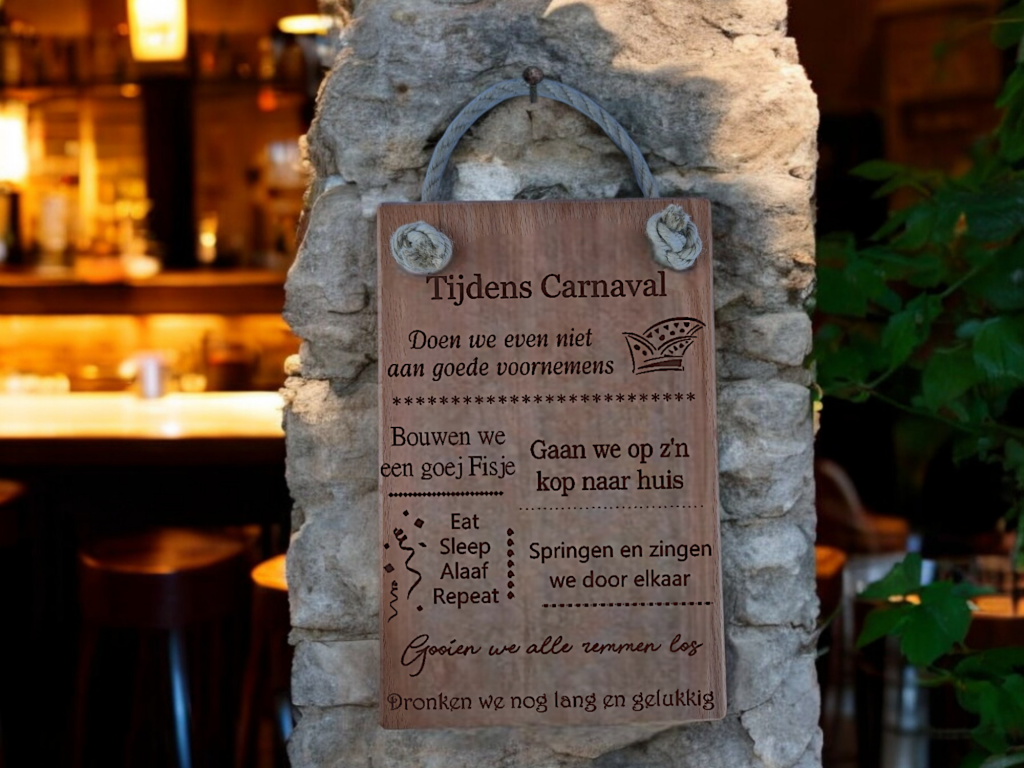 Tijdens Carnaval
Doen we even niet
aan goede voornemens
***********************
Bouwen we
een goej Fisje
Gaan we op z'n
kop naar huis
Eat
Sleep
Alaaf
Repeat
Springen en zingen
we door elkaar
Gooien we alle remmen los
Dronken we nog lang en gelukkig